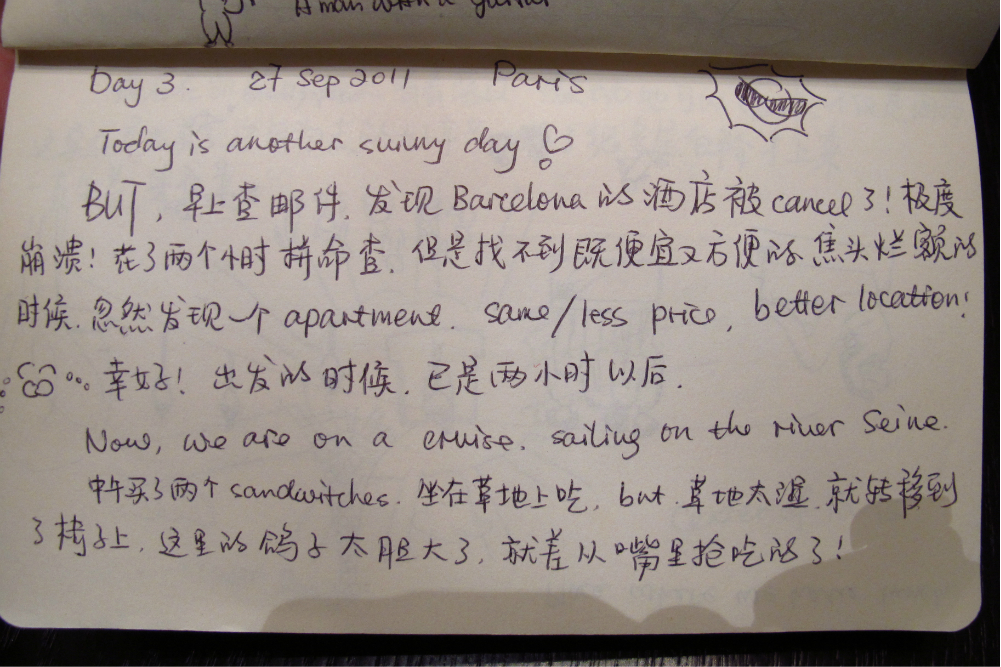 A man with a guitar
Day 3. 27 Sep 2011 Paris
Today is another sunny day!
BUT, 早上查邮件, 发现Barcelona的酒店被cancel了!极度
崩溃!花了两个小时拼命查, 但是找不到既便宜又方便的. 焦头烂额的
时候, 忽然发现一个apartment. same/less price, better location!
幸好! 出发的时候, 已是两小时以后.
Now, we are on a cruise, sailing on the river Seine.
中午买了两个sandwitches. 坐在草地上吃, but 草地太湿, 就转移到
了椅子上, 这里的鸽子太胆大了, 就差从嘴里抢吃的了!